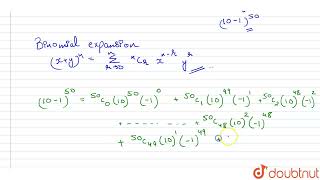 (10-1)^50
Binomial expansion
(x+y)^n = Σ r=0 n nCr x^n-r y^r
(10-1)^50 = 50C0 (10)^50 (-1)^0 + 50C1 (10)^49 (-1)^1 + 50C2 (10)^48 (-1)^2
+ - - - - - - - .. + 50C48 (10)^2 (-1)^48
+ 50C49 (10)^1 (-1)^49
doubtnut